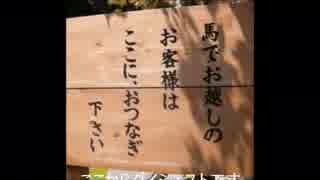 馬でお越しの
お客様は
ここに、おつなぎ
下さい